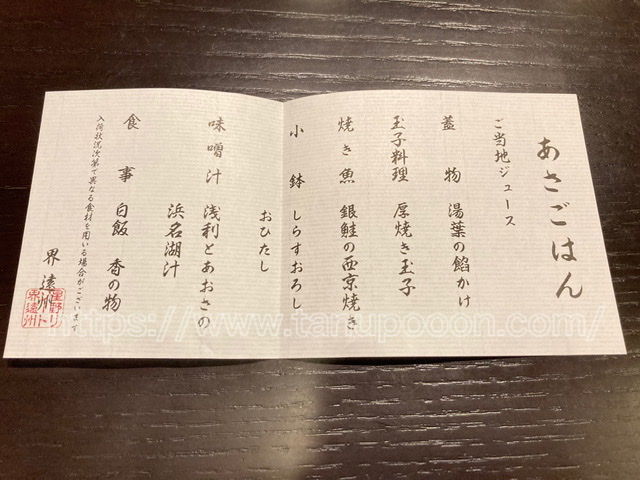 あさごはん
ご当地ジュース
蓋 物 湯葉の餡かけ
玉子料理 厚焼き玉子
焼き魚 銀鮭の西京焼き
小 鉢 しらすおろし
おひたし
味噌汁 浅利とあおさの
浜名湖汁
食 事 白飯 香の物
入荷状況次第で異なる食材を用いる場合がございます
界 遠州
星野リ
ゾート
界遠州
https://www.tanupooon.com/